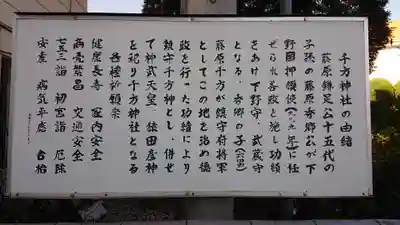 千方神社の由緒
藤原鎌足公十五代の
子孫の藤原秀郷公が下
野国押領使(九一九年)に任
ぜられ各政と施し功績
をあげ下野守、武蔵守
となる。秀郷の子(六男)
藤原千方が鎮守府将軍
としてこの地を治め徳
政を行った功績により
鎮守千方神とし、併せ
て神武天皇、猿田彦神
を祀り千方神社となる
各種祈願祭
健康長寿 家内安全
商売繁昌 交通安全
七五三詣 初宮詣 厄除
安産 病気平癒 合格